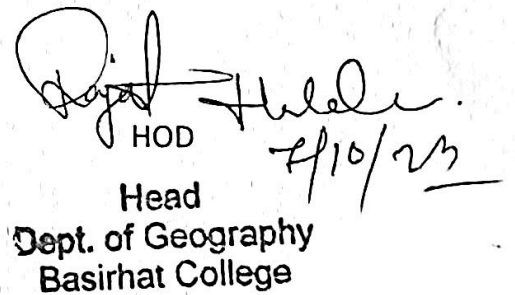 Rajat
HOD
7/10/23
Head
Dept. of Geography
Basirhat College